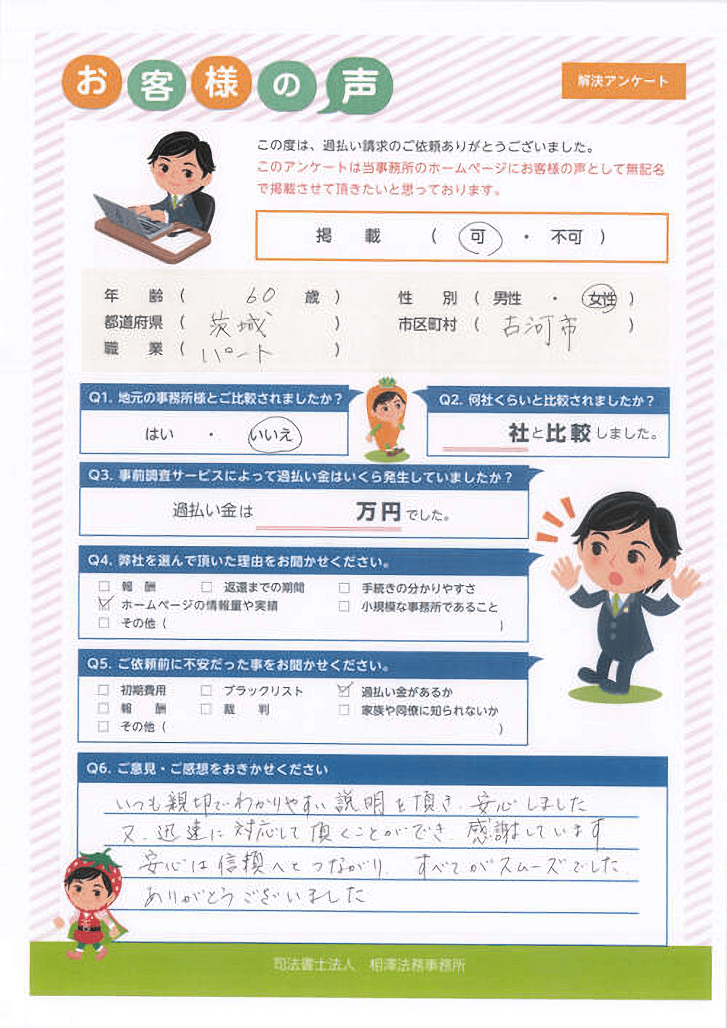 お客様の声
解決アンケート
この度は、過払い請求のご依頼ありがとうございました。
このアンケートは当事務所のホームページにお客様の声として無記名
で掲載させて頂きたいと思っております。
掲 載 ( 可 ・ 不可 )
年 齢 ( 60 歳 ) 性 別 ( 男性 ・ 女性 )
都道府県 ( 茨城 ) 市区町村 ( 古河市 )
職 業 ( パート )
Q1. 地元の事務所様とご比較されましたか?
はい ・ いいえ
Q2. 何社くらいと比較されましたか?
社と比較しました。
Q3. 事前調査サービスによって過払い金はいくら発生していましたか?
過払い金は 万円でした。
Q4. 弊社を選んで頂いた理由をお聞かせください。
□ 報 酬 □ 返還までの期間 □ 手続きの分かりやすさ
☑ ホームページの情報量や実績 □ 小規模な事務所であること
□ その他 ( )
Q5. ご依頼前に不安だった事をお聞かせください。
□ 初期費用 □ ブラックリスト ☑ 過払い金があるか
□ 報 酬 □ 裁 判 □ 家族や同僚に知られないか
□ その他 ( )
Q6. ご意見・ご感想をおきかせください
いつも親切でわかりやすい説明を頂き、安心しました
又、迅速に対応して頂くことができ、感謝しています
安心は信頼へとつながり、すべてがスムーズでした
ありがとうございました
司法書士法人 相澤法務事務所